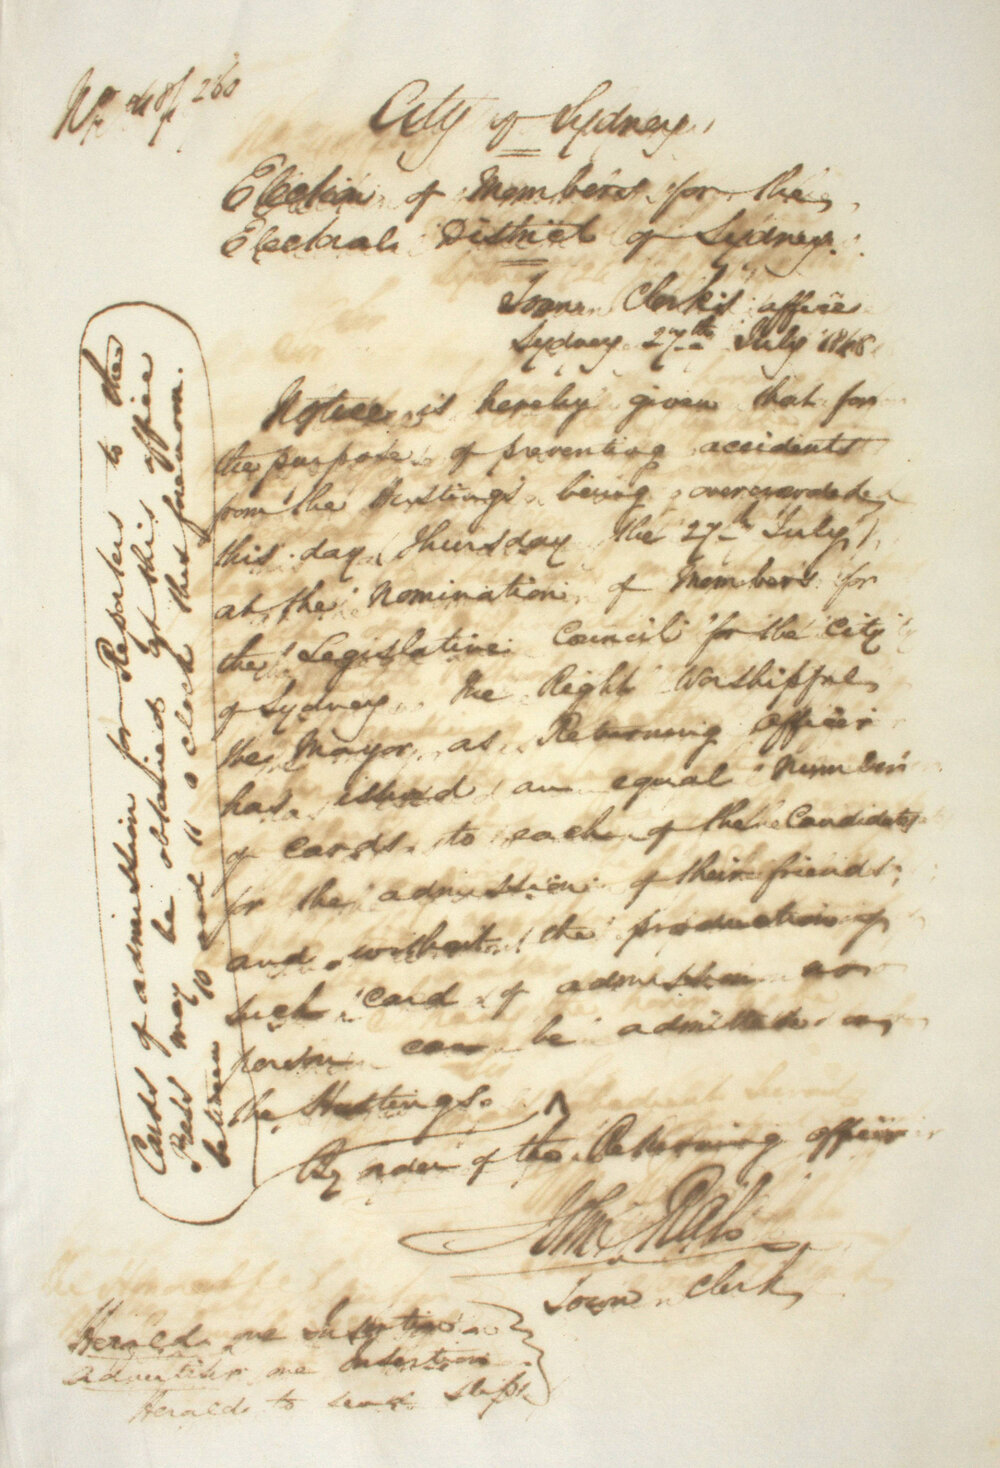 No 48/260
City of Sydney
Election of Members for the
Electoral District of Sydney.
Town Clerk's Office
Sydney 27th July 1848
Notice is hereby given that for
the purpose of preventing accidents
from the Hustings being overcrowded
this day (Thursday the 27th July)
at the Nomination of Members for
the Legislative Council for the City
of Sydney, the Right Worshipful
the Mayor as Returning Officer
has issued an equal Number
of cards to each of the Candidates
for the admission of their friends;
and without the production of
such card of admission no
person can be admitted on
the Hustings.
By order of the Returning Officer
John Rae
Town Clerk
Cards of admission for Reporters to the
Press may be obtained at this office
between 10 and 11 o'clock this forenoon.
Herald one Insertion
Advertiser one Insertion
Herald to send slips